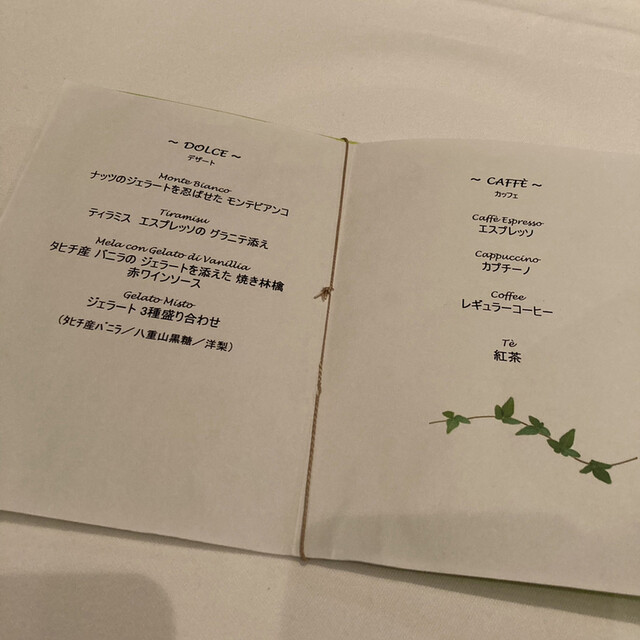 ~ DOLCE ~
デザート
Monte Bianco
ナッツのジェラートを忍ばせた モンテビアンコ
Tiramisu
ティラミス エスプレッソの グラニテ添え
Mela con Gelato di Vanillia
タヒチ産 バニラの ジェラートを添えた 焼き林檎
赤ワインソース
Gelato Misto
ジェラート 3種盛り合わせ
(タヒチ産バニラ/八重山黒糖/洋梨)
~ CAFFÈ ~
カッフェ
Caffè Espresso
エスプレッソ
Cappuccino
カプチーノ
Coffee
レギュラーコーヒー
Tè
紅茶